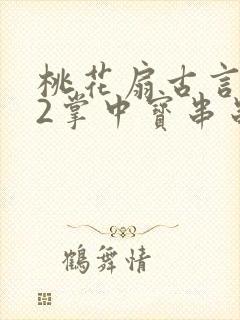 桃花扇古言
2掌中寶串
鶴舞情